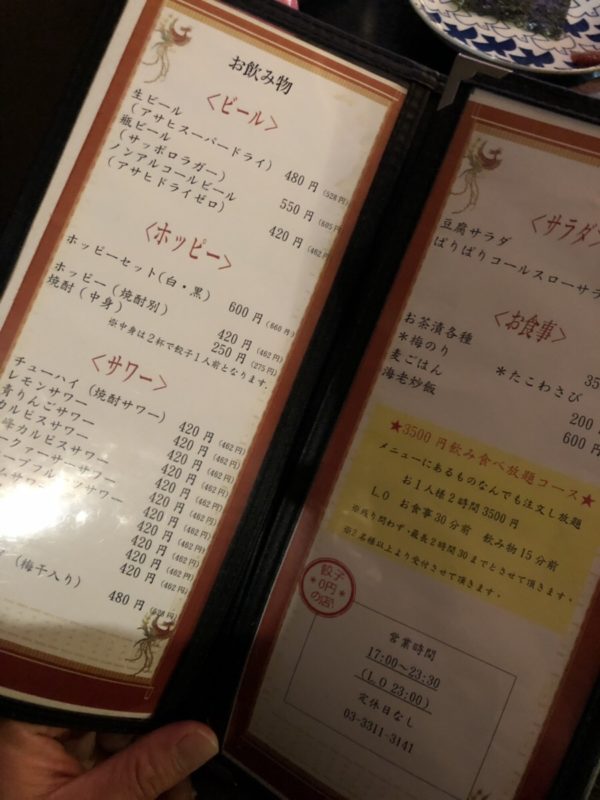 お飲み物
<ビール>
生ビール
(アサヒスーパードライ) 480円(528円)
瓶ビール
(サッポロラガー) 550円(605円)
ノンアルコールビール
(アサヒドライゼロ) 420円(462円)
<ホッピー>
ホッピーセット(白・黒) 600円(660円)
ホッピー(焼酎別) 420円(462円)
焼酎(中身) 250円(275円)
※中身は2杯で餃子1人前となります.
<サワー>
チューハイ(焼酎サワー) 420円(462円)
レモンサワー 420円(462円)
青りんごサワー 420円(462円)
カルピスサワー 420円(462円)
峰カルピスサワー 420円(462円)
420円(462円)
420円(462円)
420円(462円)
(梅干入り) 480円(528円)
<サラダ
豆腐サラダ
ぱりぱりコールスローサラ
<お食事>
お茶漬各種 35
*梅のり *たこわさび
麦ごはん 200
海老炒飯 600
★3500円飲み食べ放題コース★
メニューにあるものなんでも注文し放題
お1人様2時間3500円
L.O お食事30分前 飲み物15分前
※残り問わず・最長2時間30までとさせて頂きます.
※2名様以上より受付させて頂きます.
餃子
*0円*
の店!
営業時間
17:00~23:30
(L.O 23:00)
定休日なし
03-3311-3141